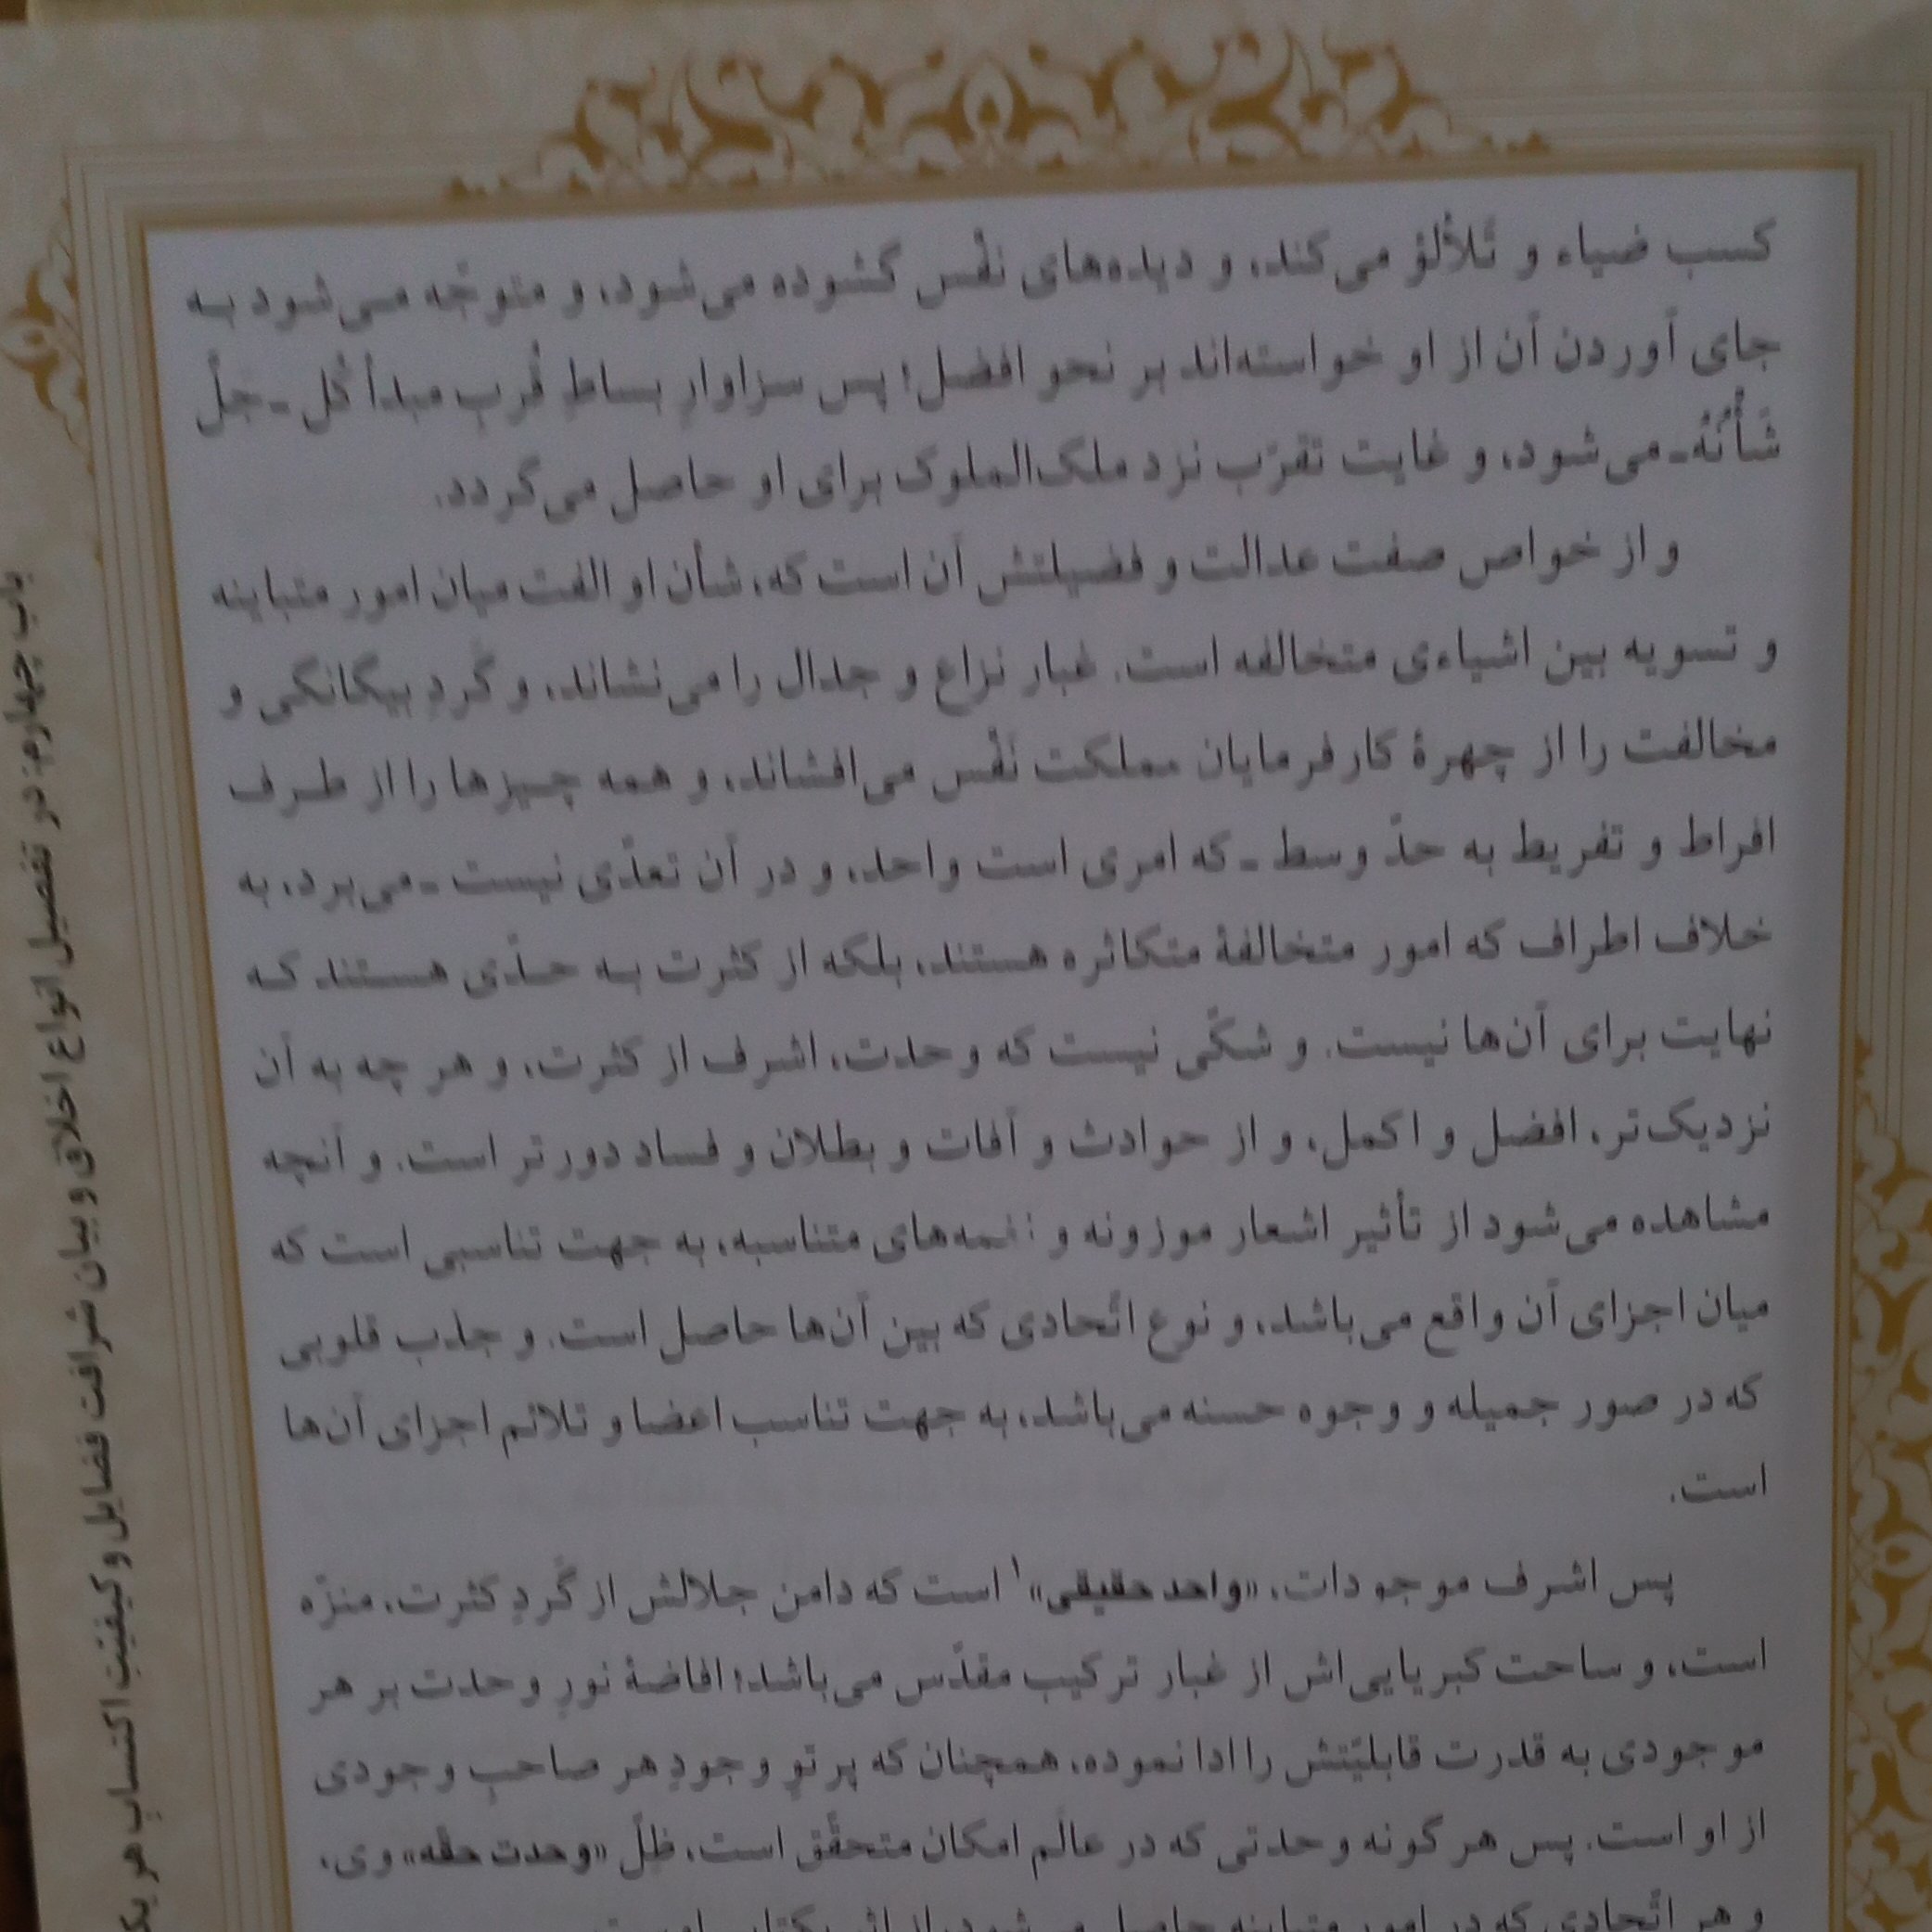 کسب ضیاء و تَلألؤ می‌کند، و دیده‌های نفْس گشوده می‌شود، و متوجّه می‌شود به
جای آوردن آن از او خواسته‌اند بر نحو افضل؛ پس سزاوارِ بساطِ قُربِ مبدأ کُل ـ جلّ
شَأنُهُ ـ می‌شود، و غایت تقرّب نزد ملک‌الملوک برای او حاصل می‌گردد.
و از خواص صفت عدالت و فضیلتش آن است که، شأن او الفت میان امور متباینه
و تسویه بین اشیاءی متخالفه است. غبار نزاع و جدال را می‌نشاند، و گَردِ بیگانگی و
مخالفت را از چهرهٔ کارفرمایان مملکت نَفْس می‌افشاند، و همه چیزها را از طرف
افراط و تفریط به حدّ وسط ـ که امری است واحد، و در آن تعدّی نیست ـ می‌برد، به
خلاف اطراف که امور متخالفهٔ متکاثره هستند، بلکه از کثرت به حدّی هستند که
نهایت برای آن‌ها نیست. و شکّی نیست که وحدت، اشرف از کثرت، و هر چه به آن
نزدیک‌تر، افضل و اکمل، و از حوادث و آفات و بطلان و فساد دورتر است. و آنچه
مشاهده می‌شود از تأثیر اشعار موزونه و نغمه‌های متناسبه، به جهت تناسبی است که
میان اجزای آن واقع می‌باشد، و نوع اتّحادی که بین آن‌ها حاصل است. و جذب قلوبی
که در صور جمیله و وجوه حسنه می‌باشد، به جهت تناسب اعضا و تلائم اجزای آن‌ها
است.
پس اشرف موجودات، «واحد حقیقی»۱ است که دامن جلالش از گَردِ کثرت، منزّه
است، و ساحت کبریایی‌اش از غبار ترکیب مقدّس می‌باشد؛ افاضهٔ نورِ وحدت بر هر
موجودی به قدرت قابلیّتش را ادا نموده، همچنان که پرتوِ وجودِ هر صاحبِ وجودی
از او است. پس هر گونه وحدتی که در عالَم امکان متحقّق است، ظلّ «وحدت حقّه» وی،
و هر اتّحادی که در امور متباینه حاصل می‌شود، از اثر یکتایی او
باب چهارم: در تفصیل انواع اخلاق و بیان شرافت فضایل و کیفیّت اکتساب هر یک